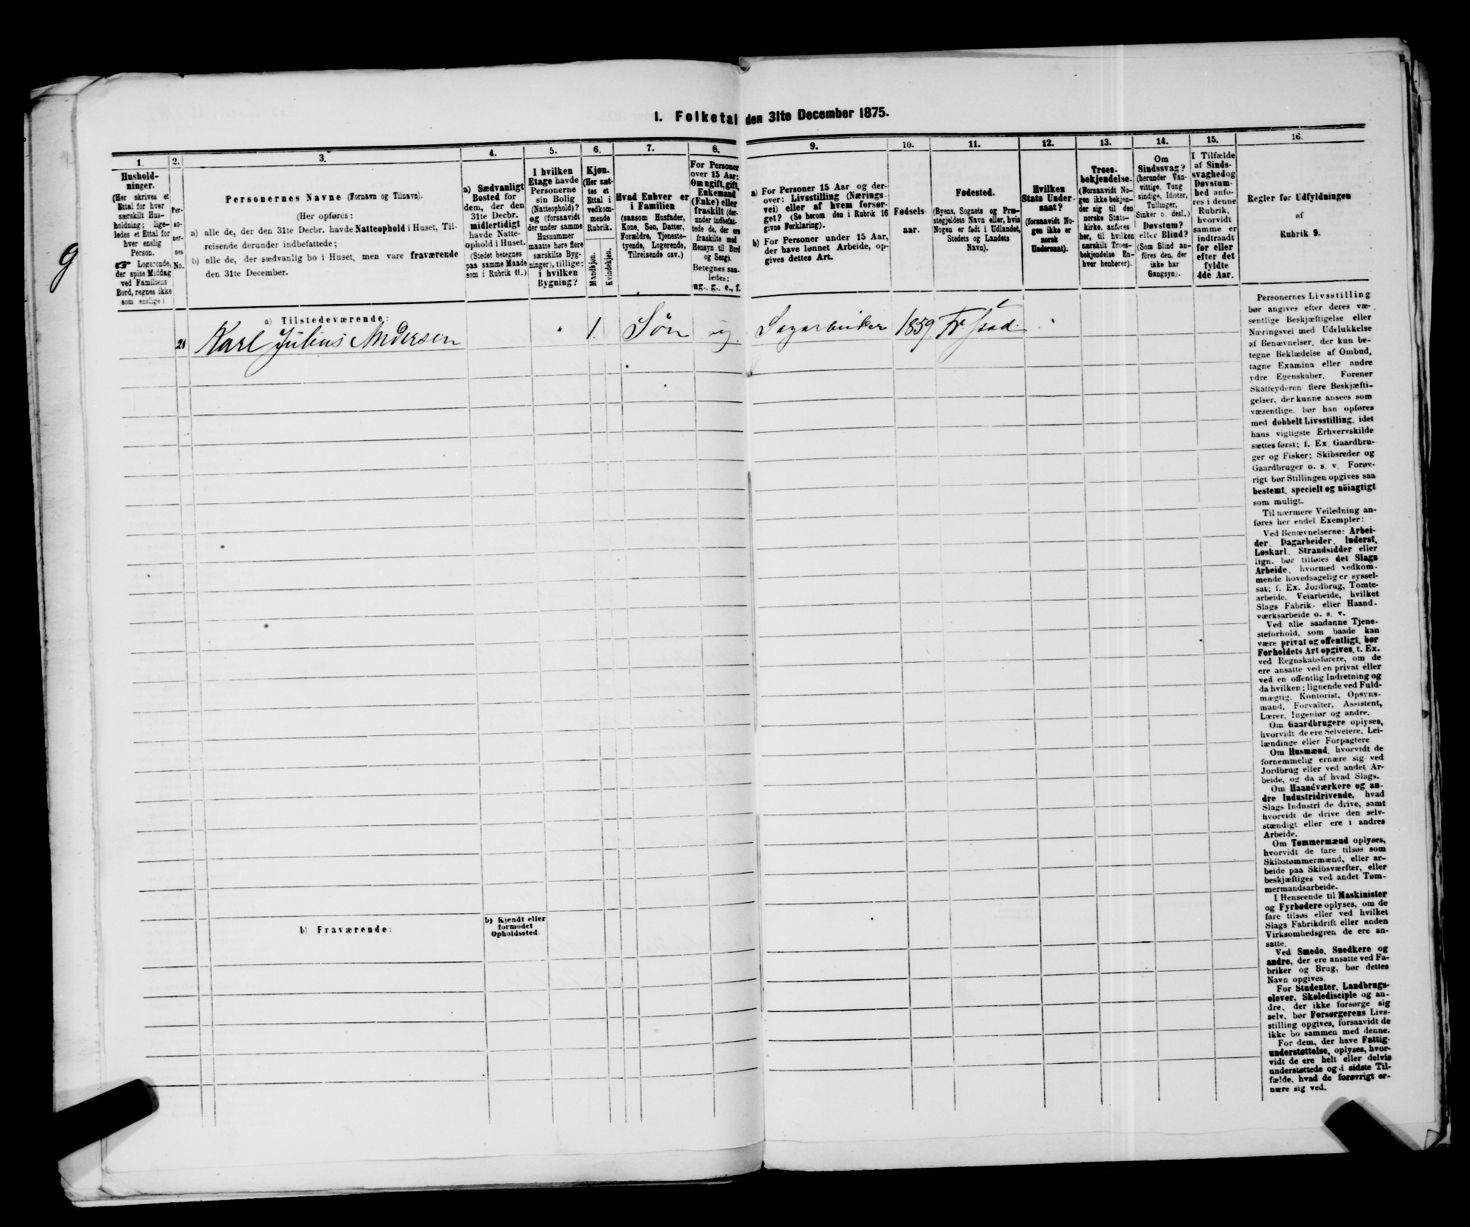 I. Folketal den 31te December 1875.
1.
Hushold-
ninger.
(Her skrives et
Ettal for hver
særskilt Hus-
holdning; lige-
ledes et Ettal for
hver enslig
Person.
☞ Logerende,
der spise Middag
ved Familiens
Bord, regnes ikke
som enslige)
2.
Per-
so-
ner-
nes
No.
3.
Personernes Navne (Fornavn og Tilnavn).
(Her opføres:
a) alle de, der den 31te Decbr. havde Natteophold i Huset, Til-
reisende derunder indbefattede;
b) alle de, der sædvanlig bo i Huset, men vare fraværende
den 31te December.
4.
a) Sædvanligt
Bosted for
dem, der den
31te Decbr.
midlertidigt
havde Natte-
ophold i Huset.
(Stedet betegnes
paa samme Maade
som i Rubrik 11.)
5.
I hvilken
Etage havde
Personerne
sin Bolig
(Natteophold)?
og (forsaavidt
der under samme
Husnummer
maatte høre flere
særskilte Byg-
ninger), tillige:
i hvilken
Bygning?
6.
Kjøn.
(Her sæt-
tes et
Ettal i
vedkom-
mende
Rubrik.
Mandkjøn.
Kvindekjøn.
7.
Hvad Enhver er
i Familien
(saasom Husfader,
Kone, Søn, Datter,
Forældre, Tjeneste-
tyende, Logerende,
Tilreisende osv.)
8.
For Personer
over 15 Aar:
Om ugift, gift,
Enkemand
(Enke) eller
fraskilt (der-
under indbefat-
tede de, der ere
fraskilte med
Hensyn til Bord
og Seng).
Betegnes saa-
ledes:
ug., g., e., f.
9.
a) For Personer 15 Aar og der-
over: Livsstilling (Nærings-
vei) eller af hvem forsør-
get? (Se herom den i Rubrik 16
givne Forklaring).
b) For Personer under 15 Aar,
der have lønnet Arbeide, op-
gives dettes Art.
10.
Fødsels-
aar.
11.
Fødested.
(Byens, Sognets og Præ-
stegjeldets Navn eller, hvis
Nogen er født i Udlandet,
Stedets og Landets
Navn).
12.
Hvilken
Stats Under-
saat?
(forsaavidt No-
gen ikke er
norsk
Undersaat).
13.
Troes-
bekjendelse.
(Forsaavidt No-
gen ikke bekjen-
der sig til den
norske Stats-
kirke, anføres
her, til hvilken
særskilt Troes-
bekjendelse En-
hver henhører).
14.
Om
Sindssvag?
(herunder Van-
vittige, Idioter,
Tullinger,
Sinker o. desl.)
Døvstum?
eller Blind?
(Som Blind an-
føres den, der
ikke har
Gangsyn).
15.
I Tilfælde
af Sinds-
svaghed og
Døvstum-
hed anfø-
res i denne
Rubrik,
hvorvidt
samme er
indtraadt
før eller
efter det
fyldte
4de Aar.
16.
Regler for Udfyldningen
af
Rubrik 9.
a) Tilstedeværende:
21 Karl Julius Andersen 1 Søn ug. Sagarbeider 1859 Fr. stad
Personernes Livsstilling
bør angives efter deres væ-
sentlige Beskjæftigelse eller
Næringsvei med Udelukkelse
af Benævnelser, der kun be-
tegne Beklædelse af Ombud,
tagne Examina eller andre
ydre Egenskaber. Forener
Skatteyderen flere Beskjæfti-
gelser, der kunne ansees som
væsentlige, bør han opføres
med dobbelt Livsstilling, idet
hans vigtigste Erhvervskilde
sættes først; f. Ex. Gaardbru-
ger og Fisker; Skibsreder og
Gaardbruger o. s. v. Forøv-
rigt bør Stillingen opgives saa
bestemt, specielt og nøiagtigt
som muligt.
Til nærmere Veiledning an-
føres her endel Exempler:
Ved Benævnelserne: Arbei-
der, Dagarbeider, Inderst,
Løskarl, Strandsidder eller
lign. bør tilføies det Slags
Arbeide, hvormed vedkom-
mende hovedsagelig er syssel-
sat; f. Ex. Jordbrug, Tomte-
arbeide, Veiarbeide, hvilket
Slags Fabrik- eller Haand-
værksarbeide o. s. v.
Ved alle saadanne Tjene-
steforhold, som baade kan
være privat og offentligt, bør
Forholdets Art opgives, f. Ex.
ved Regnskabsførere, om de
ere ansatte ved en privat eller
ved en offentlig Indretning og
da hvilken; lignende ved Fuld-
mægtig, Kontorist, Opsyns-
mand, Forvalter, Assistent,
Lærer, Ingeniør og andre.
Om Gaardbrugere oplyses,
hvorvidt de ere Selveiere, Lei-
lændinge eller Forpagtere
Om Husmænd, hvorvidt de
fornemmelig ernære sig ved
Jordbrug eller ved andet Ar-
beide, og da af hvad Slags.
Om Haandværkere og an-
dre Industridrivende, hvad
Slags Industri de drive, samt
hvorvidt de drive den selv-
stændigt eller ere i andres
Arbeide.
Om Tømmermænd oplyses,
hvorvidt de fare tilsøs som
Skibstømmermænd, eller ar-
beide paa Skibsværfter, eller
beskjæftiges ved andet Tøm-
mermandsarbeide.
I Henseende til Maskinister
og Fyrbødere oplyses, om de
fare tilsøs eller ved hvilket
Slags Fabrikdrift eller anden
Virksomhedsgren de ere an-
satte.
Ved Smede, Snedkere og
andre, der ere ansatte ved Fa-
briker og Brug, bør dettes
Navn opgives.
For Studenter, Landbrugs-
elever, Skoledisciple og an-
dre, der ikke forsørge sig
selv, bør Forsørgerens Livs-
stilling opgives, forsaavidt de
ikke bo sammen med denne.
For dem, der have Fattig-
understøttelse, oplyses, hvor-
vidt de ere helt eller delvis
understøttede og i sidste Til-
fælde, hvad de forøvrigt er-
nære sig ved.
b) Fraværende:
b) Kjendt eller
formodet
Opholdssted.